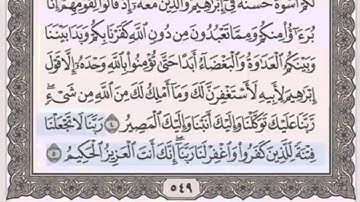 لَكُمۡ أُسۡوَةٌ حَسَنَةٌ فِيٓ إِبۡرَٰهِيمَ وَٱلَّذِينَ مَعَهُۥٓ إِذۡ قَالُواْ لِقَوۡمِهِمۡ إِنَّا
بُرَءَٰٓؤُاْ مِنكُمۡ وَمِمَّا تَعۡبُدُونَ مِن دُونِ ٱللَّهِ كَفَرۡنَا بِكُمۡ وَبَدَا بَيۡنَنَا
وَبَيۡنَكُمُ ٱلۡعَدَٰوَةُ وَٱلۡبَغۡضَآءُ أَبَدًا حَتَّىٰ تُؤۡمِنُواْ بِٱللَّهِ وَحۡدَهُۥٓ إِلَّا قَوۡلَ
إِبۡرَٰهِيمَ لِأَبِيهِ لَأَسۡتَغۡفِرَنَّ لَكَ وَمَآ أَمۡلِكُ لَكَ مِنَ ٱللَّهِ مِن شَيۡءٖۖ
رَّبَّنَا عَلَيۡكَ تَوَكَّلۡنَا وَإِلَيۡكَ أَنَبۡنَا وَإِلَيۡكَ ٱلۡمَصِيرُ ٤ رَبَّنَا لَا تَجۡعَلۡنَا
فِتۡنَةٗ لِّلَّذِينَ كَفَرُواْ وَٱغۡفِرۡ لَنَا رَبَّنَآۖ إِنَّكَ أَنتَ ٱلۡعَزِيزُ ٱلۡحَكِيمُ ٥
٥٤٩